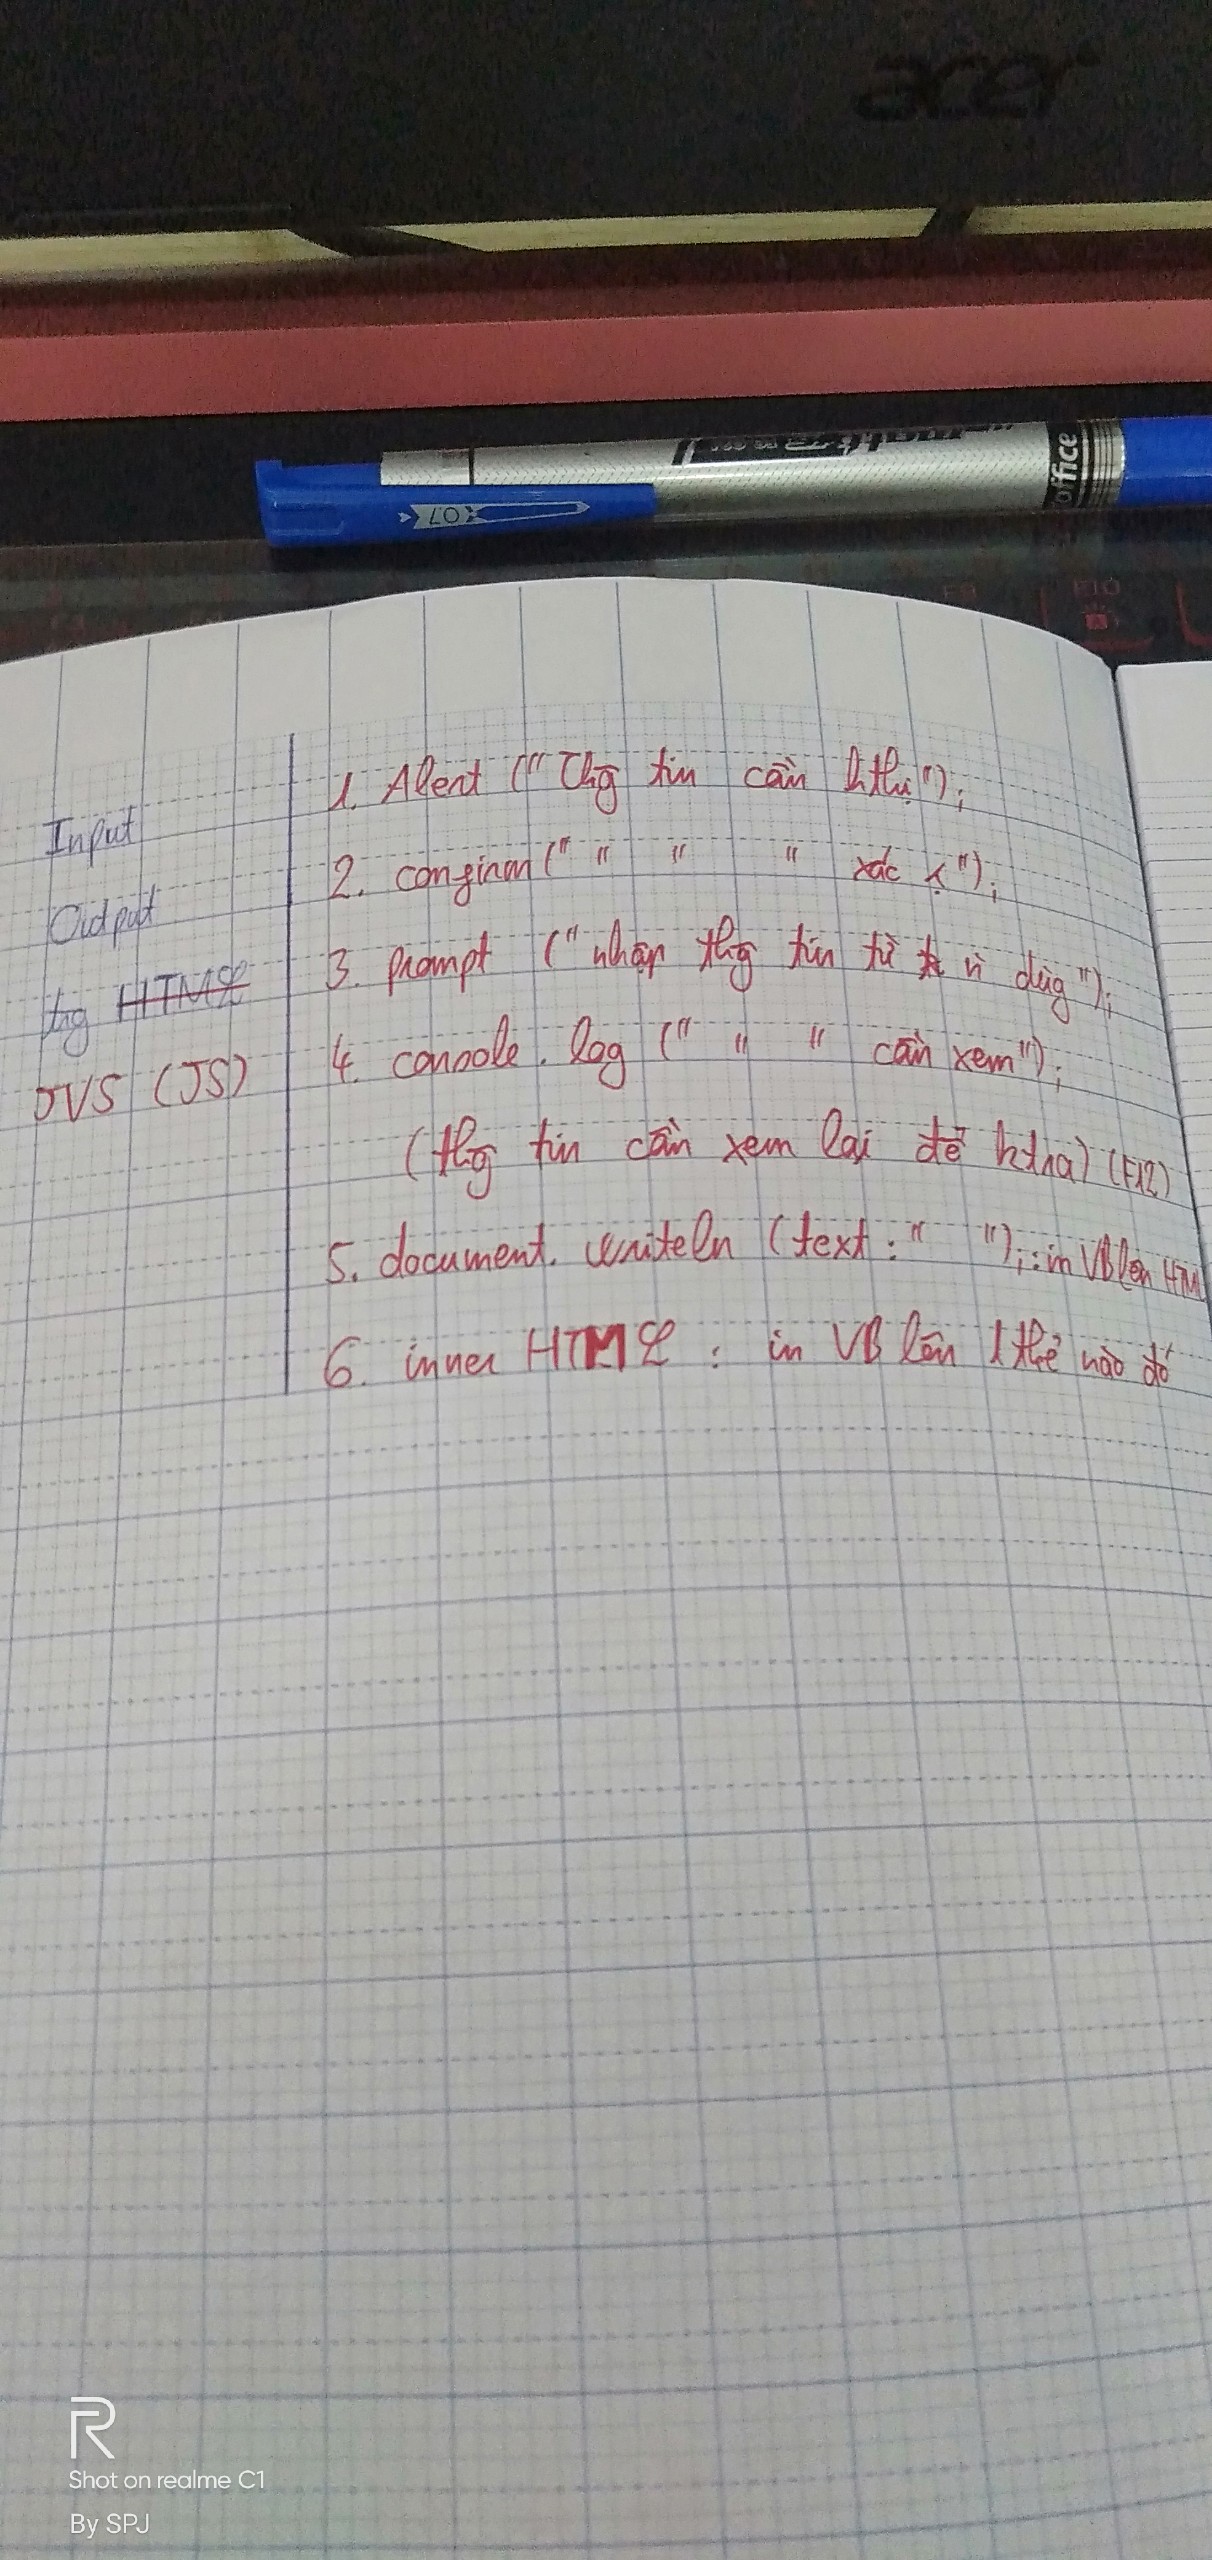 acer
office
0.7
F9
F10
Input
Output
trg HTML
JVS (JS)
1. Alert ("Thg tin cần hthị");
2. confirm (" " " " xác ");
3. prompt ("nhập thg tin từ n dùg");
4. console.log (" " " cần xem");
(thg tin cần xem lại để ktra) (F12)
5. document.writeln (text: " "); : in VB lên HTM
6. inner HTML : in VB lên 1 thẻ nào đó
R
Shot on realme C1
By SPJ